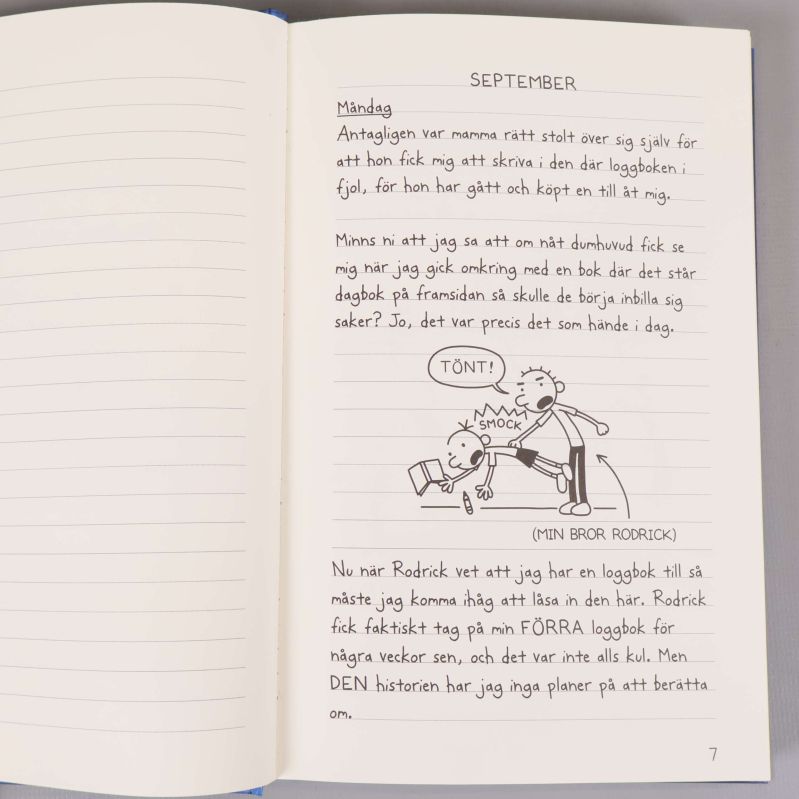 SEPTEMBER
Måndag
Antagligen var mamma rätt stolt över sig själv för
att hon fick mig att skriva i den där loggboken i
fjol, för hon har gått och köpt en till åt mig.
Minns ni att jag sa att om nåt dumhuvud fick se
mig när jag gick omkring med en bok där det står
dagbok på framsidan så skulle de börja inbilla sig
saker? Jo, det var precis det som hände i dag.
TÖNT!
SMOCK
(MIN BROR RODRICK)
Nu när Rodrick vet att jag har en loggbok till så
måste jag komma ihåg att låsa in den här. Rodrick
fick faktiskt tag på min FÖRRA loggbok för
några veckor sen, och det var inte alls kul. Men
DEN historien har jag inga planer på att berätta
om.
7